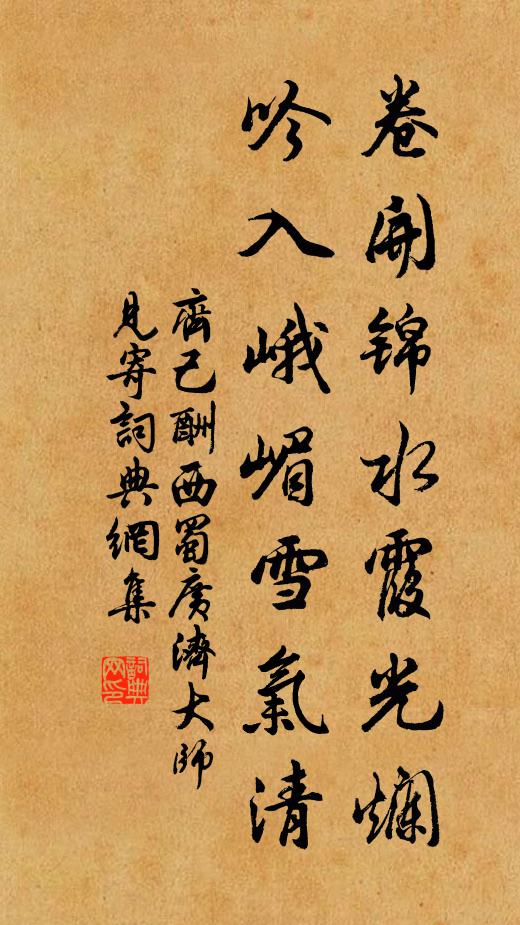 卷開錦水霞光爛
吟入峨嵋雪氣清
齊己酬西蜀廣濟大師
見寄詞典網集
詞典网印